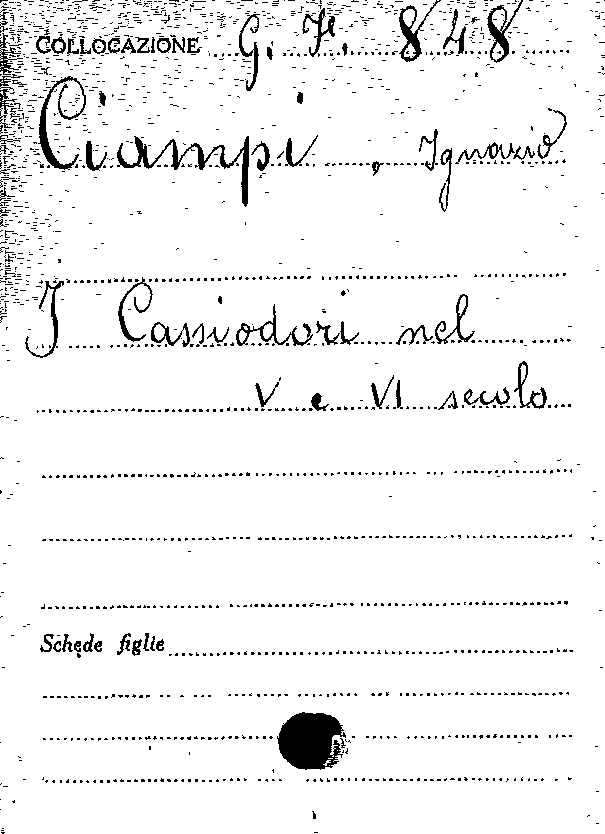 COLLOCAZIONE G. F. 848
Ciampi, Ignazio
I Cassiodori nel
V e VI secolo
Schede figlie